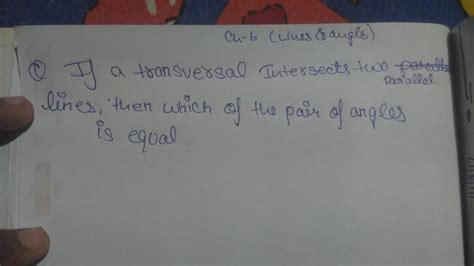 Ch-6 (Lines & angle)
Q If a transversal Intersects two parallel
lines, then which of the pair of angles
is equal.